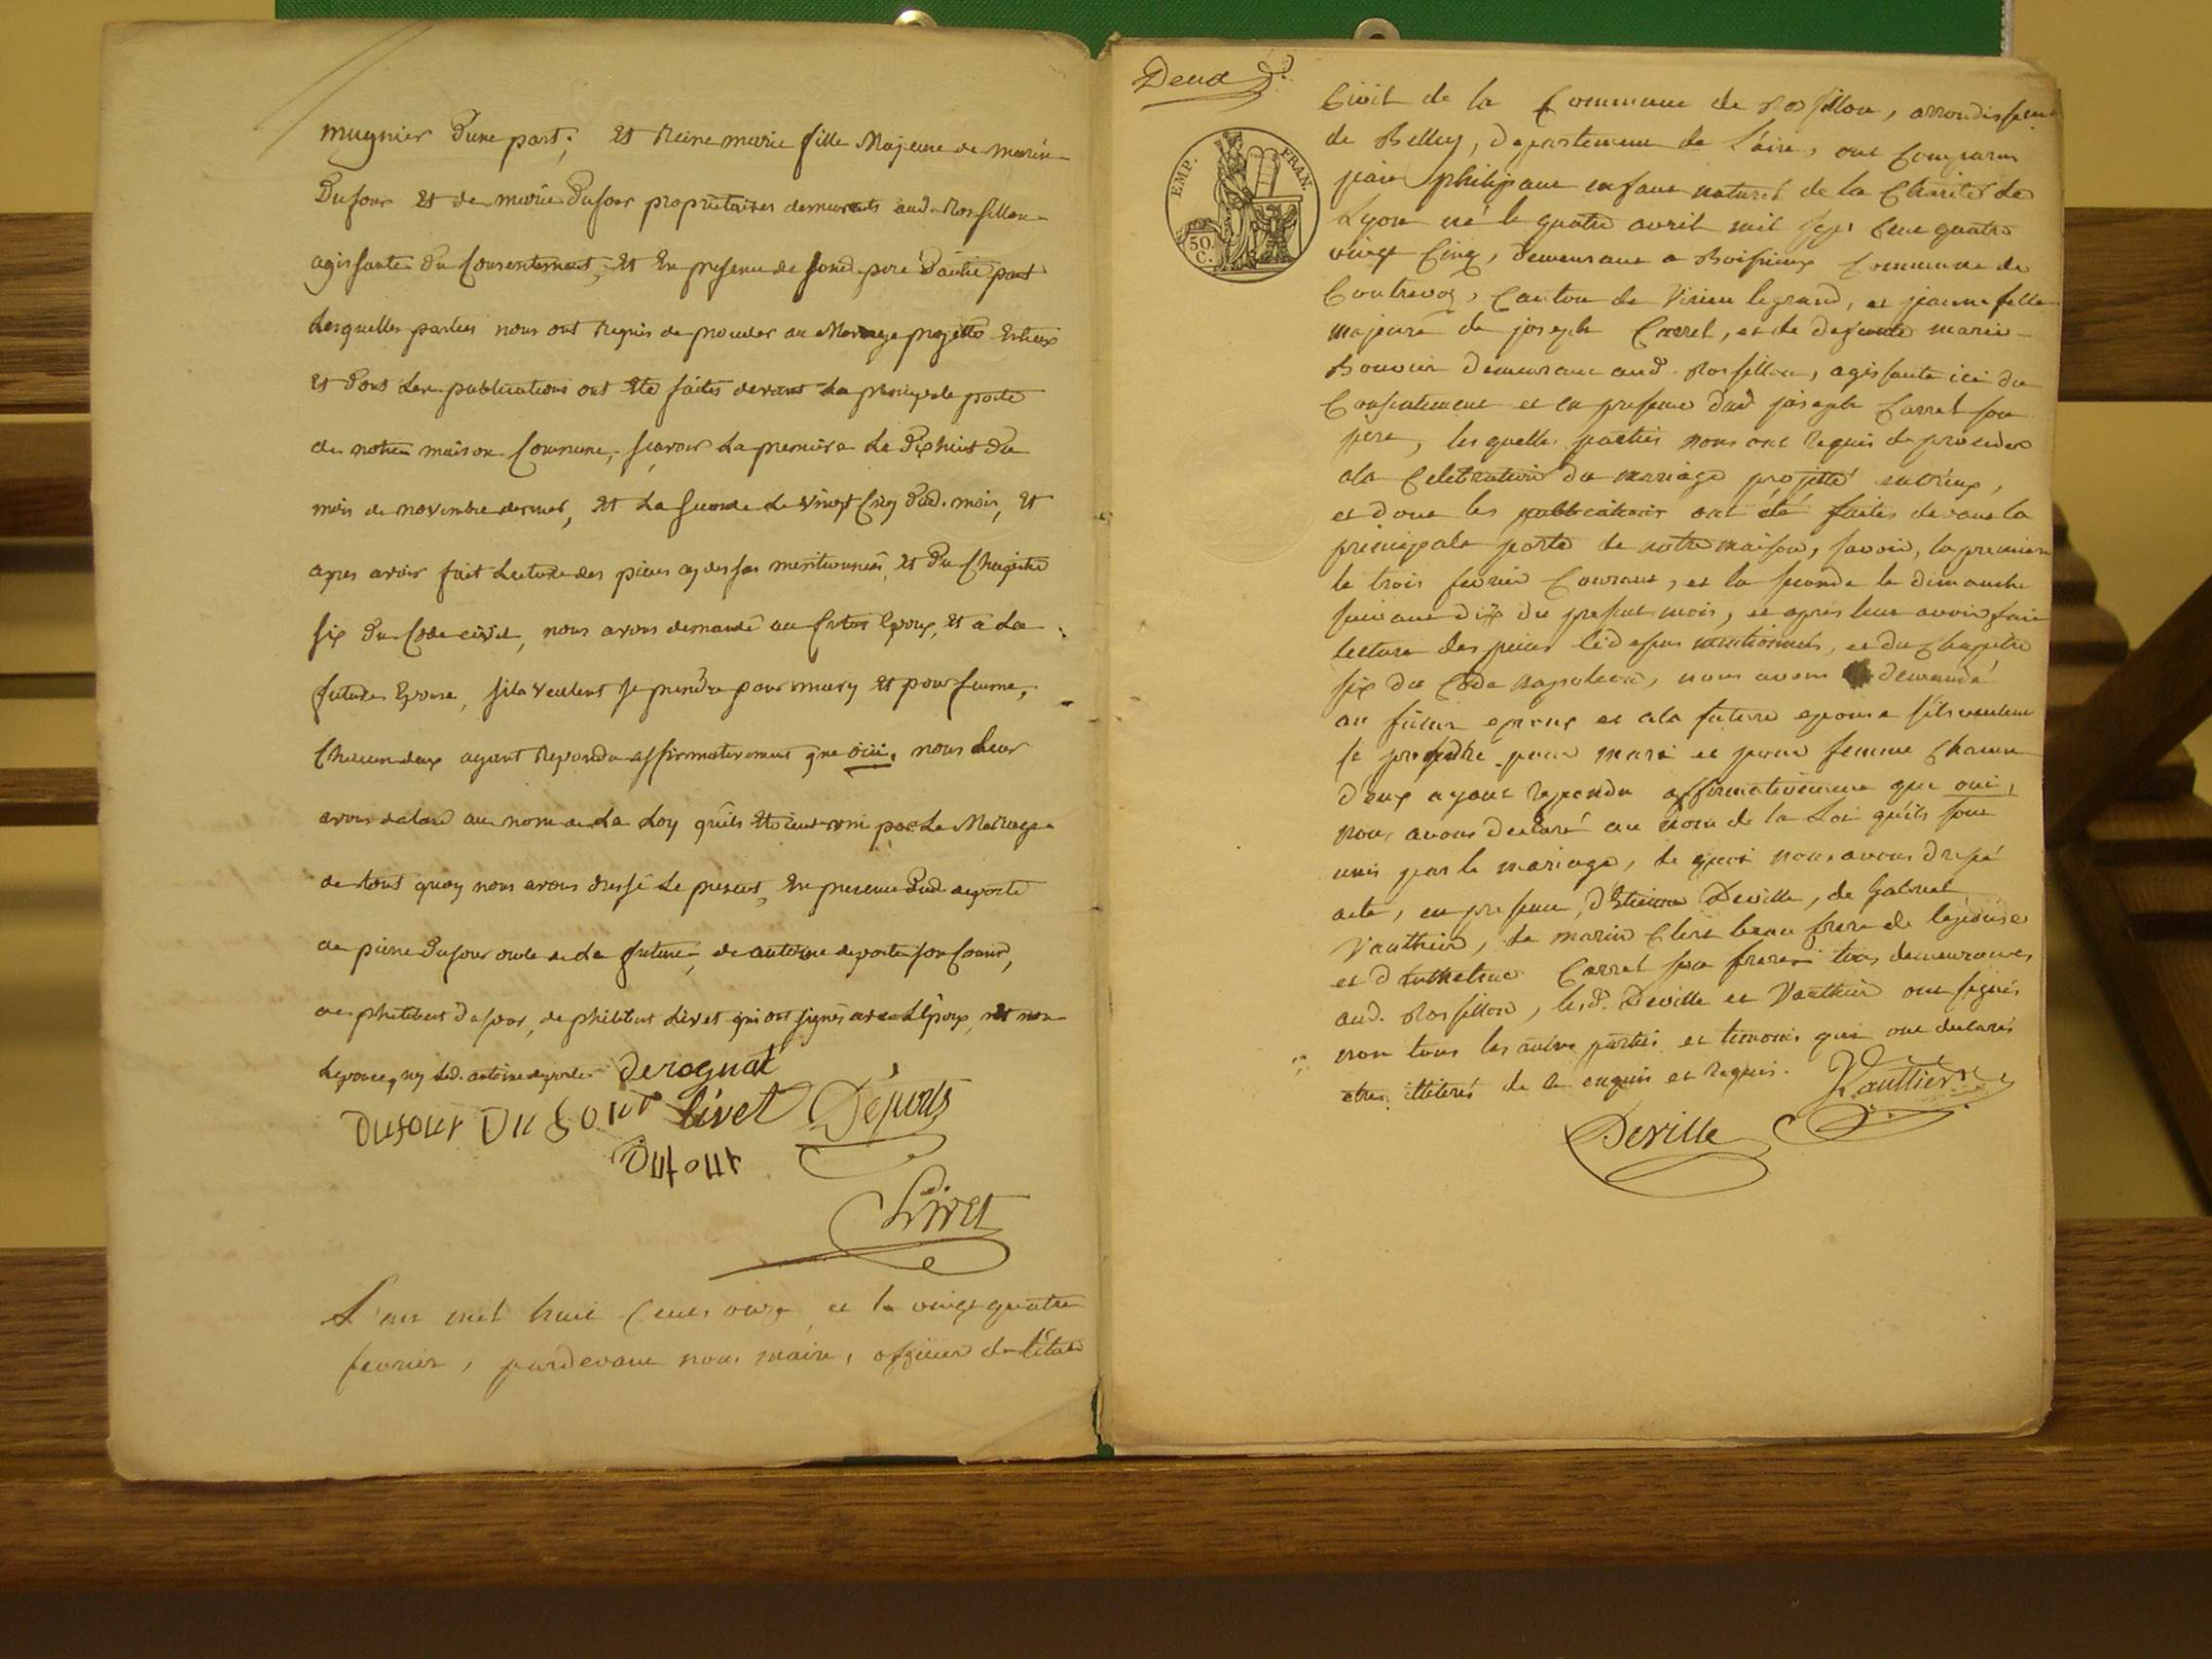 mugnier d'une part; Et Reine marie fille Majeure de marin
Dufour Et de marie Dufour propriétaires demeurants aud. Rossillon
agissante du Consentement, Et En presence de sond. pere d'autre part
Lesquelles parties nous ont requis de proceder au Mariage projetté Entreux
Et dont Les publications ont Eté faites devant La principale porte
de notre maison Commune, sçavoir La premiere Le dixhuit du
mois de novembre dernier, Et La seconde Le vingt Cinq dud. mois, Et
apres avoir fait Lecture des pieces cy dessus mentionneés, Et du Chapitre
six du Code civil, nous avons demandé au futur Epoux, Et a La
future Epouse, sils veulent se prendre pour mary Et pour femme,
Chacun deux ayant repondu affirmativement que oüi, nous Leur
avons declaré au nom de La Loy quils Etoient uni par Le Mariage
de tout quoy nous avons dressé Le present, En presence dud. deporte
de pierre Dufour oncle de La future, de antoine deporte son Cousin,
de philibert Dufour, de philibert Livet qui ont signés avec L'Epoux, Et non
Lepouse, ny Led. antoine deporte Derognat
DUfOUr DUfOUr Livet Deporte
Dufour
Livet
L'an mil huit Cents onze et le vingt quatre
fevrier, pardevant nous maire, officier de l'état
Deux
EMP. FRAN.
50.
C.
Civil de la Commune de Rossillon, arrondissement
de Belley, departement de l'ain, ont Comparus
jean philipaux enfant naturel de la Charité de
Lyon né le quatre avril mil sept Cent quatre
vingt Cinq, demeurant a Boissieux Commune de
Contrevoz, Canton de Virieu legrand, et jeanne fille
majeure de joseph Carrel, et de defunte marie
Bouvier demeurant aud. Rossillon, agissante ici du
Consentement et en presence dud joseph Carrel son
pere, lesquelles parties nous ont requis de proceder
ala Celebration du mariage projetté entr'eux,
et dont les publications ont été faites devant la
principale porte de notre maison, savoir, la premiere
le trois fevrier Courant, et la seconde le dimanche
suivant dix du present mois, et après leur avoir fait
lecture des pieces cidessus mentionnées, et du Chapitre
six du Code Napoleon, nous avons demandé
au futur epoux et ala future epouse s'ils veulent
se prendre pour mari et pour femme Chacun
d'eux ayant repondu affirmativement que oui,
nous avons declaré au nom de la Loi qu'ils sont
unis par le mariage, de quoi nous avons dressé
acte, en presence, d'Etienne Deville, de Gabriel
Vauthier, de marin Clerc beau frere de l'epouse
et d'Anthelme Carrel son frere tous demeurants
aud. Rossillon, lesd. Deville et Vauthier ont signés
non tous les autres parties et temoins qui ont declarés
etres illiterés de ce enquis et requis. Vauttier
Deville